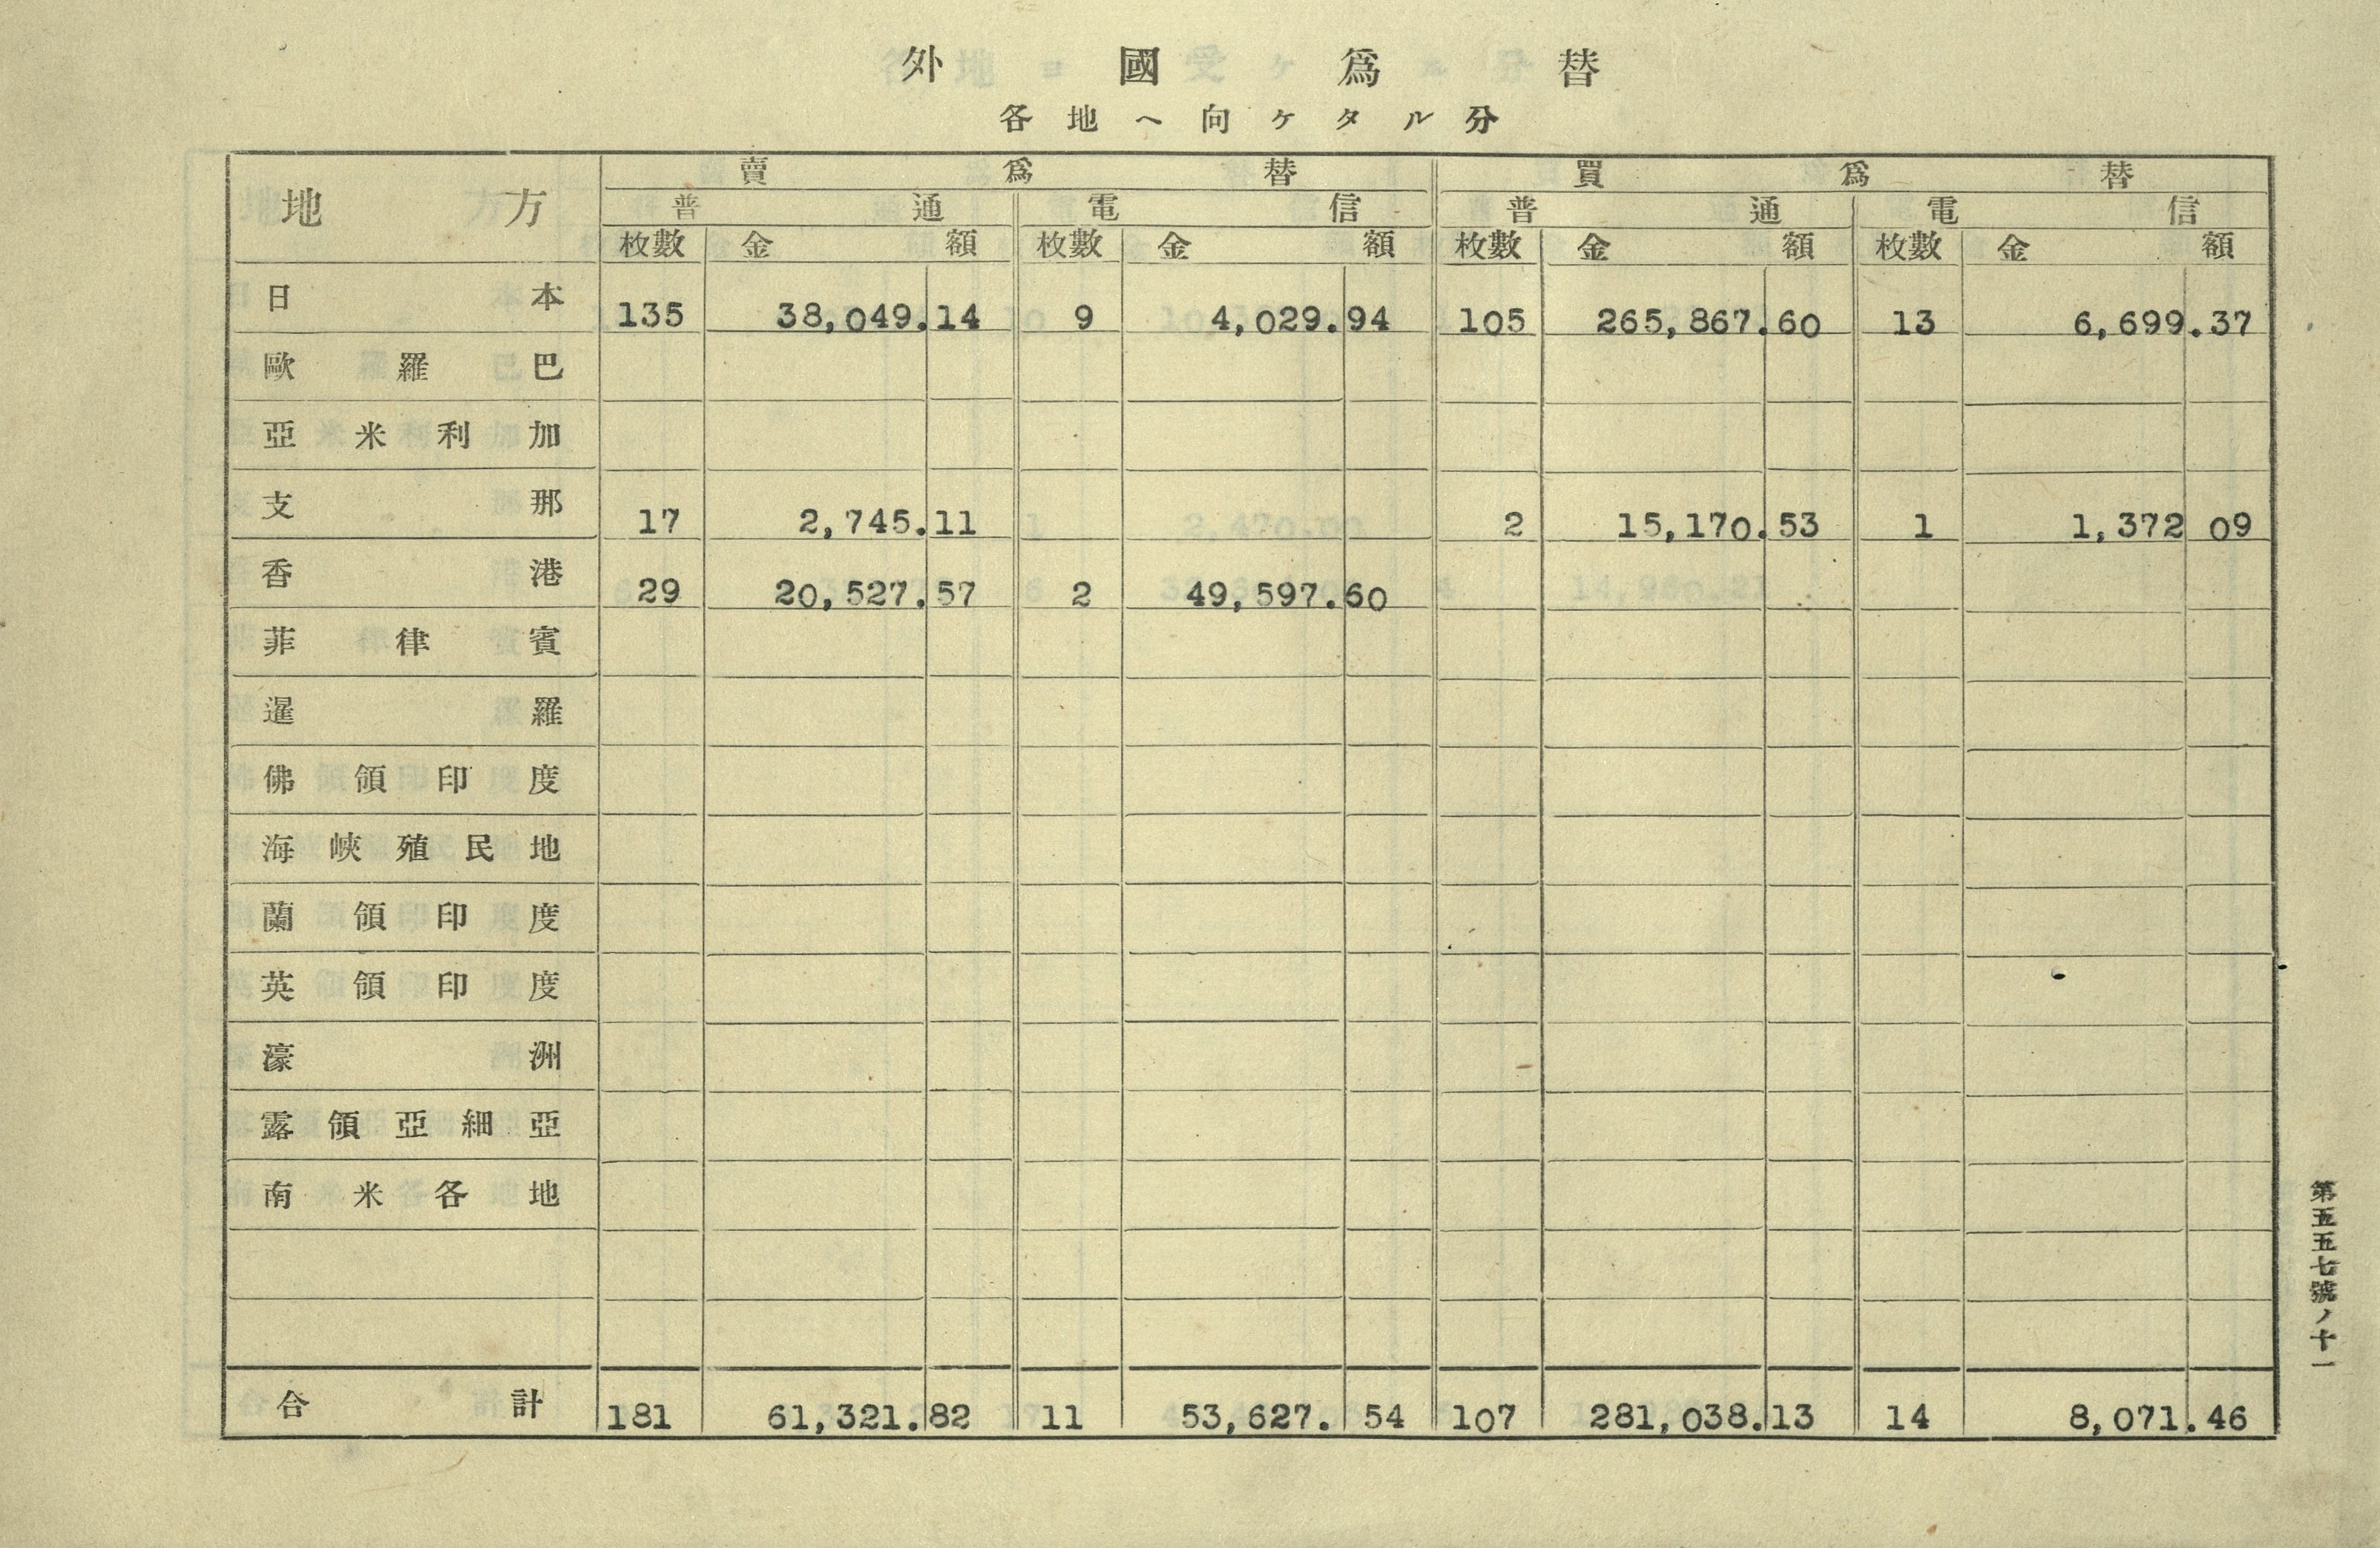 外國爲替
各地ヘ向ケタル分
地方 賣爲替 買爲替
普通 電信 普通 電信
枚數 金額 枚數 金額 枚數 金額 枚數 金額
日本 135 38,049.14 9 4,029.94 105 265,867.60 13 6,699.37
歐羅巴
亞米利加
支那 17 2,745.11 2 15,170.53 1 1,372 09
香港 29 20,527.57 2 49,597.60
菲律賓
暹羅
佛領印度
海峽殖民地
蘭領印度
英領印度
濠洲
露領亞細亞
南米各地
合計 181 61,321.82 11 53,627.54 107 281,038.13 14 8,071.46
第五五七號ノ十一